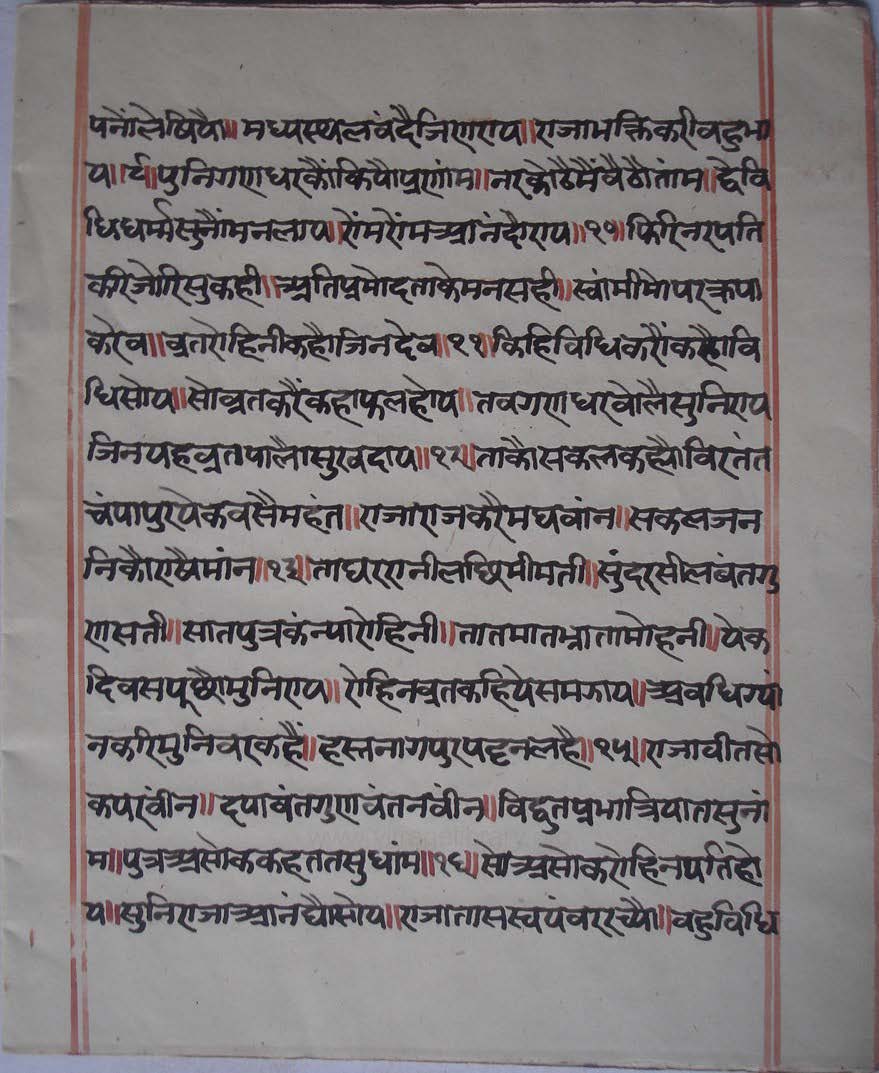 पनौंलेषियै॥ मध्यस्थलवंदैजिणराय॥ राजाभक्तिकरीवहुभा
य॥र्द॥ पुनिगणधरकौंकियौप्रणांम॥ नरकोठैमैंवैठौतांम॥ द्वैवि
धिधर्म्मसुनौंमनलाय॥ रोंमरोंमआनंदौराय॥१०॥ फिरिनरपति
करिजोरिसुकही॥ अतिप्रमोदताकेमनसही॥ स्वांमीमोपरक्रपा
करेव॥ व्रतरोहिनीकहौजिनदेव॥११॥ किहिविधिकरौंकहौवि
धिसोय॥ सोव्रतकरैंकहाफलहोय॥ तवगणधरवोलैसुनिराय
जिनयहव्रतपालौसुखदाय॥१२॥ ताकौसकलकह्यौविरतंत
चंपापुरयेकवसैमहंत॥ राजाराजकरैमघवांन॥ सकलजन
निकौराषैमांन॥१३॥ ताघररानीलछिमीमती॥ सुंदरसीलवंतगु
णसती॥ सातपुत्रकंन्यारोहिनी॥ तातमातभ्रातामोहनी॥ येक
दिवसपूछौमुनिराय॥ रोहिनव्रतकहियेसमझाय॥ अवधिग्यां
नकरिमुनिवरकहैं॥ हस्तनागपुरपट्टनलहै॥१५॥ राजावीतसो
कपरवींन॥ दयावंतगुणवंतनवींन॥ विद्दुतप्रभात्रियातसुनां
म॥ पुत्रअसोककहततसुधांम॥१६॥ सोअसोकरोहिनपतिहो
य॥ सुनिराजाआनंद्यौसोय॥ राजातासस्वयंवररच्यौ॥ वहुविधि